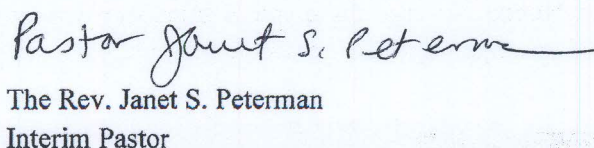 Pastor Janet S. Peterman
The Rev. Janet S. Peterman
Interim Pastor